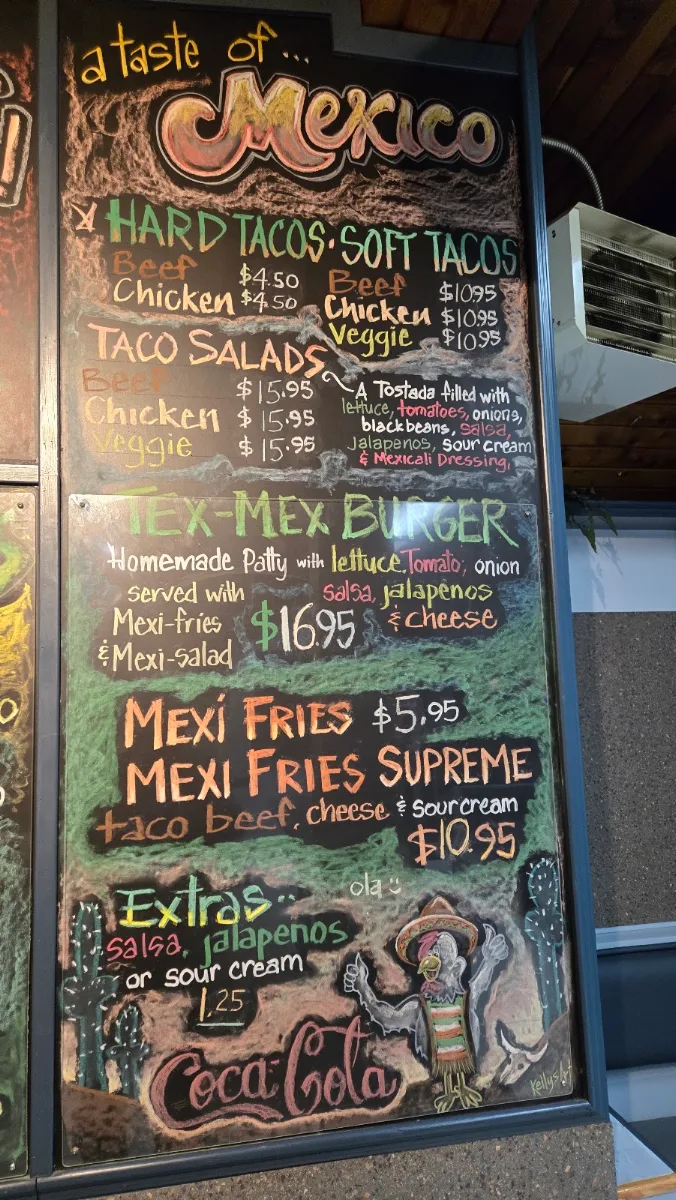 a taste of...
Mexico
HARD TACOS · SOFT TACOS
Beef $4.50 Beef $10.95
Chicken $4.50 Chicken $10.95
Veggie $10.95
TACO SALADS
Beef $15.95
Chicken $15.95
Veggie $15.95
A Tostada filled with
lettuce, tomatoes, onions,
black beans, salsa,
jalapenos, sour cream
& Mexicali Dressing.
TEX-MEX BURGER
Homemade Patty with lettuce, Tomato, onion
served with salsa, jalapenos
Mexi-fries $16.95 & cheese
& Mexi-salad
MEXÍ FRIES $5.95
MEXI FRIES SUPREME
taco beef, cheese & sour cream
$10.95
Extras..
salsa, jalapenos
or sour cream
1.25
ola
Coca-Cola